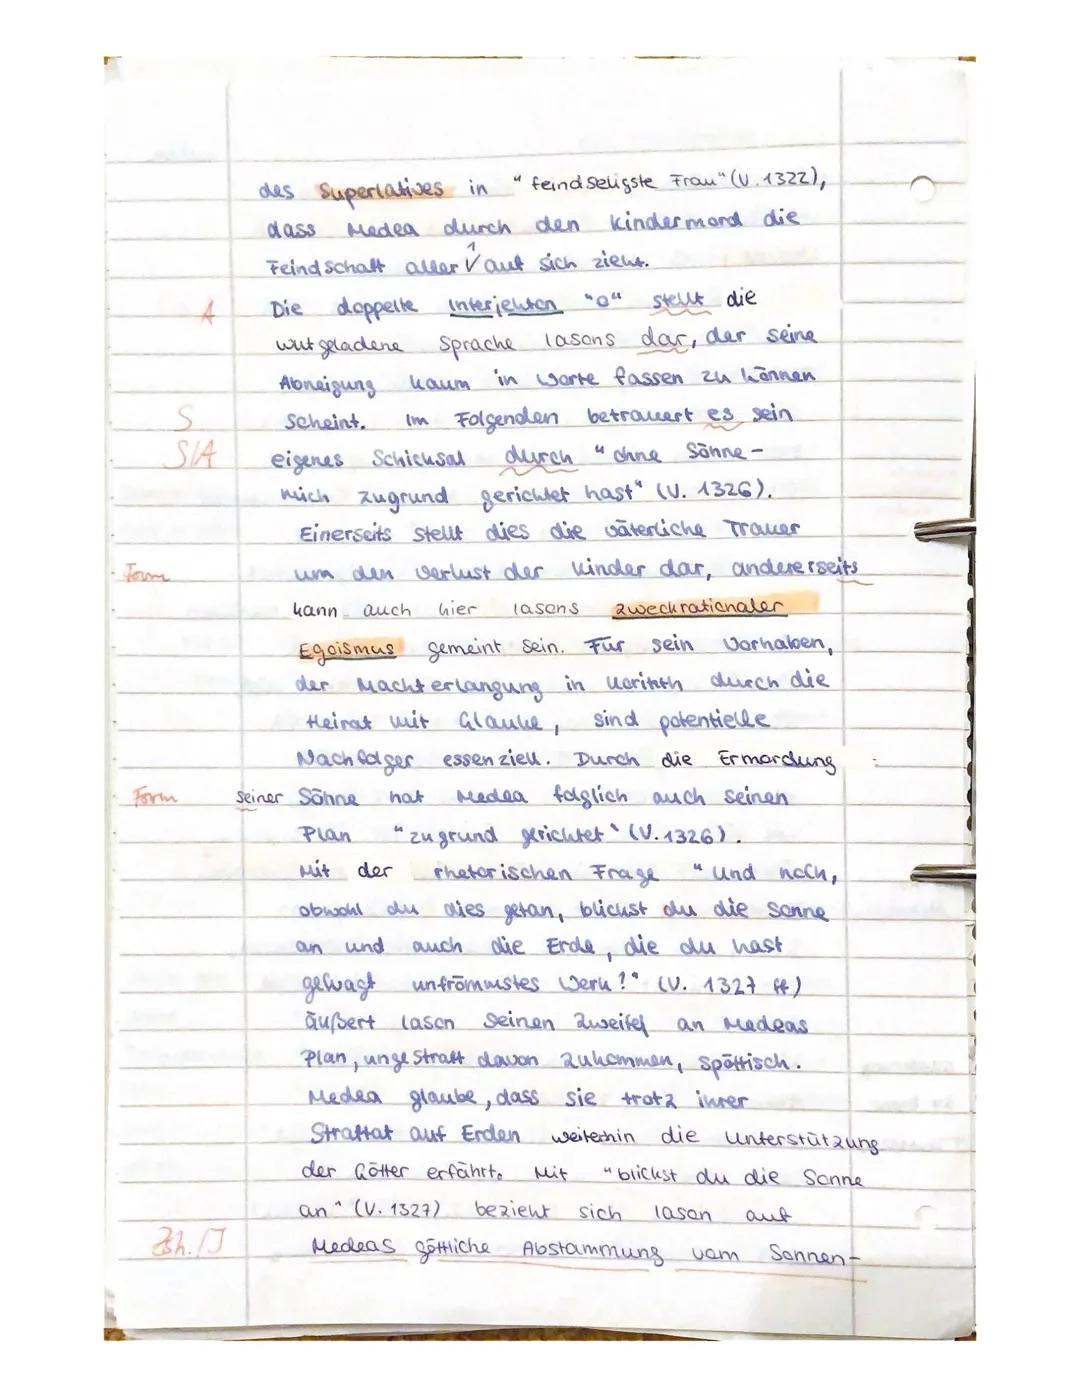 des Superlatives in "feindseligste Frau" (V. 1322),
dass Medea durch den Kindermord die
Feindschaft aller √ auf sich zieht.
A Die doppelte Interjektion "o" stellt die
wutgeladene Sprache Iasons dar, der seine
Abneigung kaum in Worte fassen zu können
S scheint. Im Folgenden betrauert es sein
S/A eigenes Schicksal durch "ohne Söhne -
mich zugrund gerichtet hast" (V. 1326).
Einerseits stellt dies die väterliche Trauer
Form um den Verlust der Kinder dar, andererseits
kann auch hier Iasons zweckrationaler
Egoismus gemeint sein. Für sein Vorhaben,
der Machterlangung in Korinth durch die
Heirat mit Glauke, sind potentielle
Nachfolger essenziell. Durch die Ermordung
Form seiner Söhne hat Medea folglich auch seinen
Plan "zugrund gerichtet" (V. 1326).
Mit der rhetorischen Frage "Und noch,
obwohl du dies getan, blickst du die Sonne
an und auch die Erde, die du hast
gewagt unfrömmstes Werk?" (V. 1327 ff)
äußert Iason seinen Zweifel an Medeas
Plan, ungestraft davon zukommen, spöttisch.
Medea glaube, dass sie trotz ihrer
Straftat auf Erden weiterhin die Unterstützung
der Götter erfährt. Mit "blickst du die Sonne
an" (V. 1327) bezieht sich Iason auf
Zsh./I Medeas göttliche Abstammung vom Sonnen-